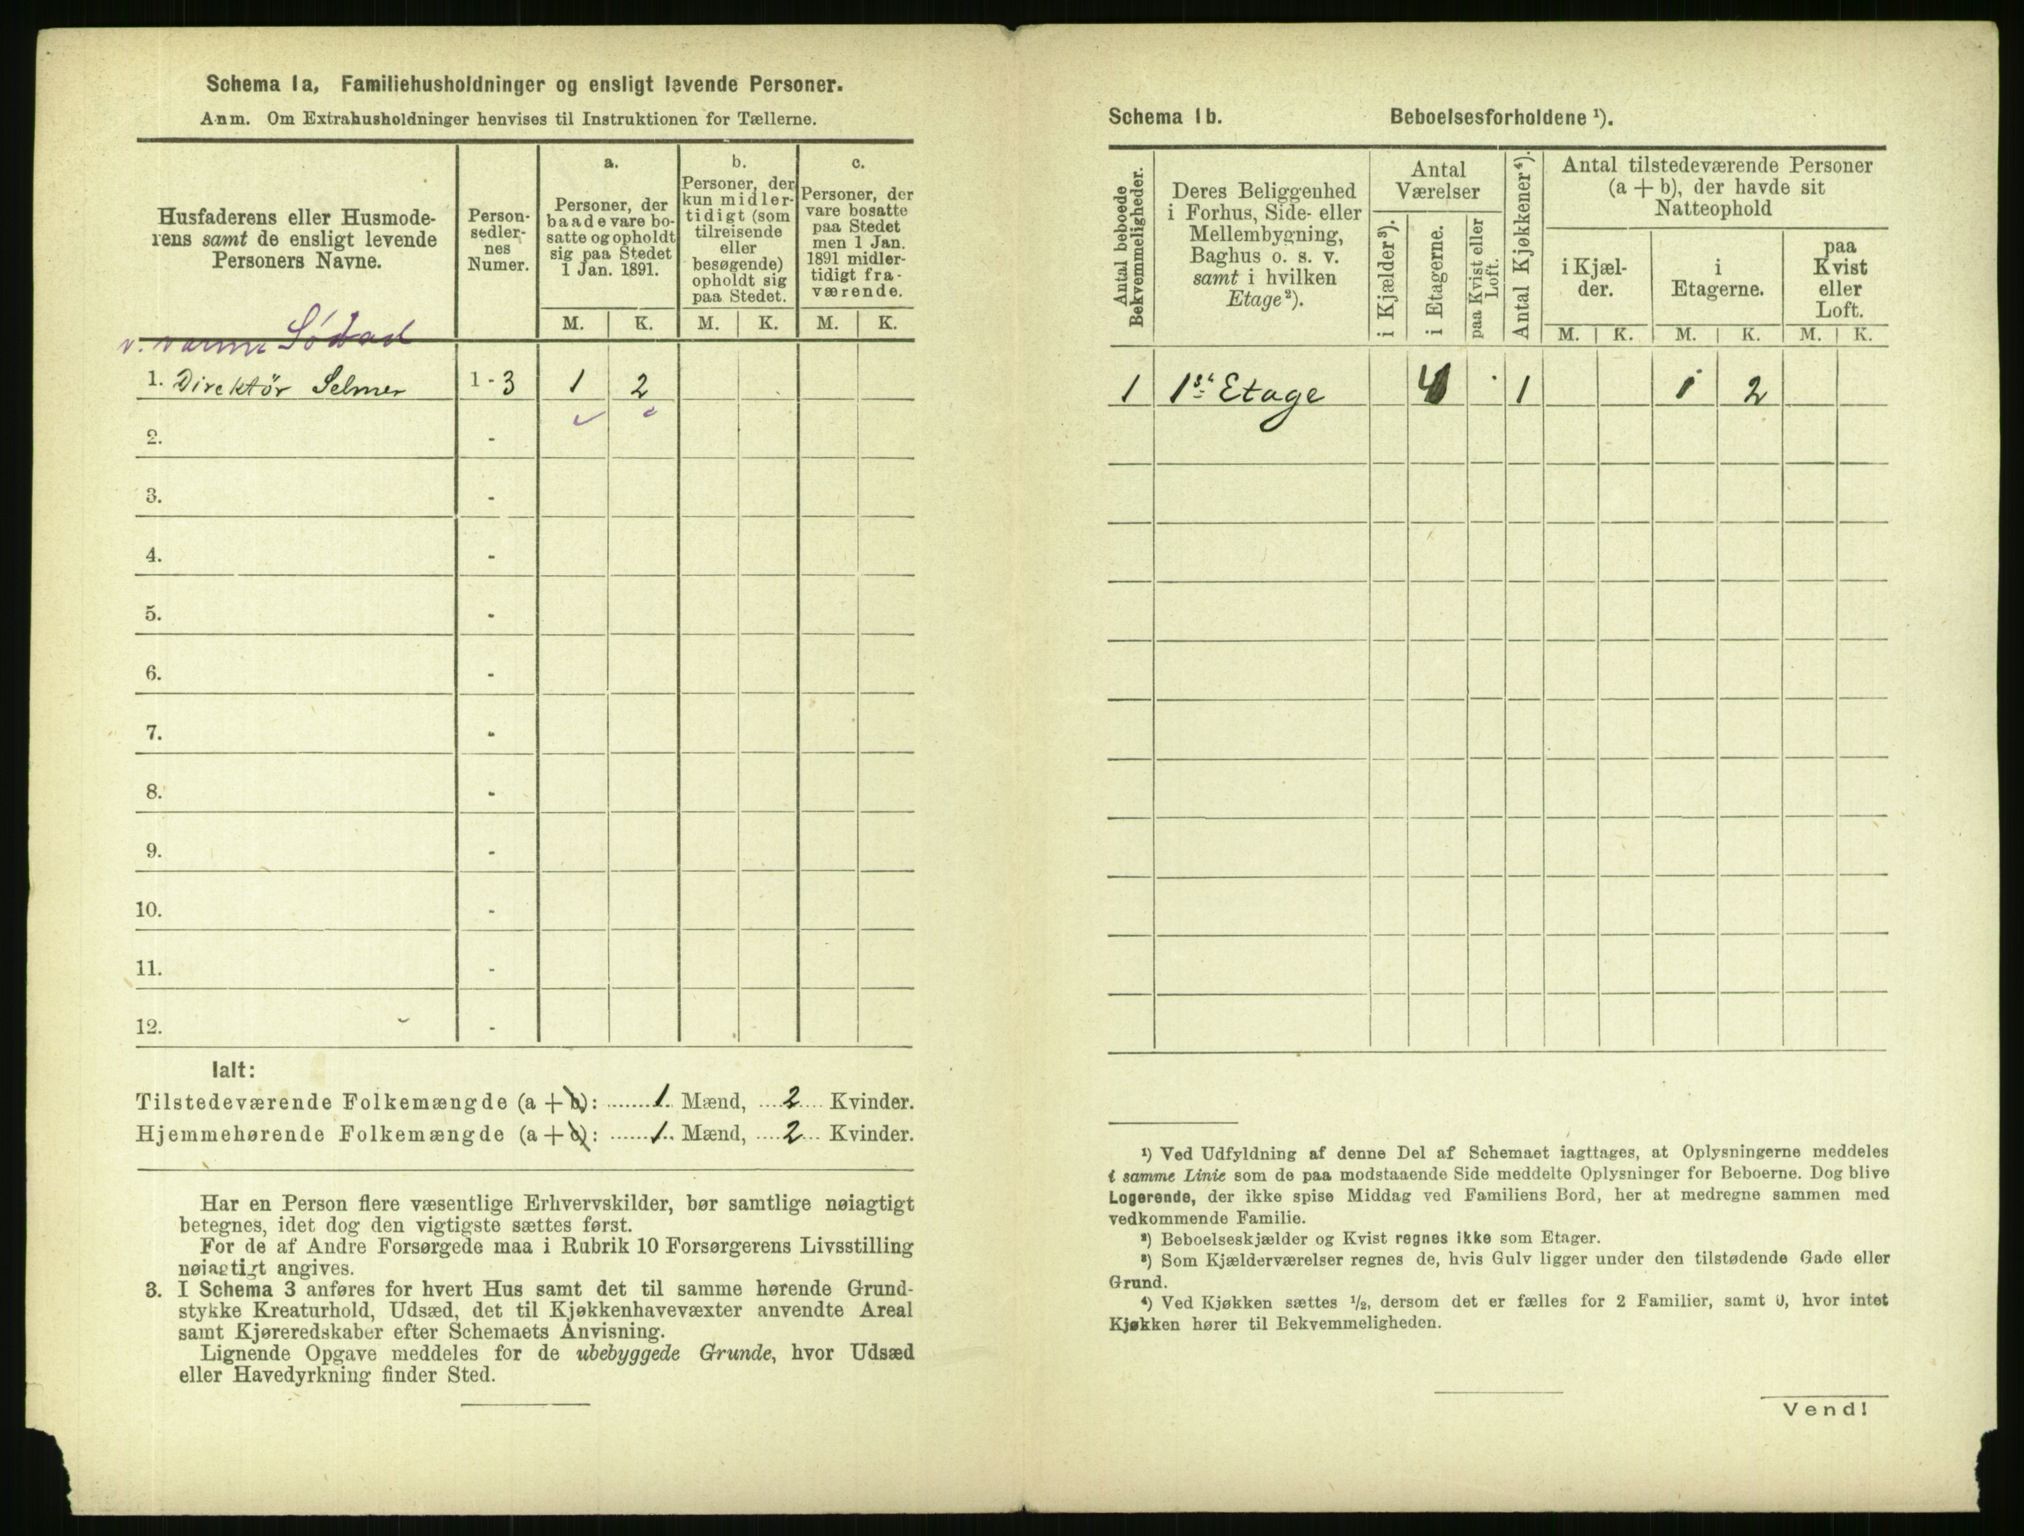 Schema 1a, Familiehusholdninger og ensligt levende Personer.
Anm. Om Extrahusholdninger henvises til Instruktionen for Tællerne.
Husfaderens eller Husmode-
rens samt de ensligt levende
Personers Navne.
Person-
sedler-
nes
Numer.
a.
Personer, der
baade vare bo-
satte og opholdt
sig paa Stedet
1 Jan. 1891.
b.
Personer, der
kun midler-
tidigt (som
tilreisende
eller
besøgende)
opholdt sig
paa Stedet.
c.
Personer, der
vare bosatte
paa Stedet
men 1 Jan.
1891 midler-
tidigt fra-
værende.
M. K. M. K. M. K.
v. varme Södbad
1. Direktör Selmer 1 - 3 1 2
2. -
3. -
4. -
5. -
6. -
7. -
8. -
9. -
10. -
11. -
12. -
Ialt:
Tilstedeværende Folkemængde (a + b): 1 Mænd, 2 Kvinder.
Hjemmehørende Folkemængde (a + c): 1 Mænd, 2 Kvinder.
Har en Person flere væsentlige Erhvervskilder, bør samtlige nøiagtigt
betegnes, idet dog den vigtigste sættes først.
For de af Andre Forsørgede maa i Rubrik 10 Forsørgerens Livsstilling
nøiagtigt angives.
3. I Schema 3 anføres for hvert Hus samt det til samme hørende Grund-
stykke Kreaturhold, Udsæd, det til Kjøkkenhavevæxter anvendte Areal
samt Kjøreredskaber efter Schemaets Anvisning.
Lignende Opgave meddeles for de ubebyggede Grunde, hvor Udsæd
eller Havedyrkning finder Sted.
Schema 1b. Beboelsesforholdene ¹).
Antal beboede
Bekvemmeligheder.
Deres Beliggenhed
i Forhus, Side- eller
Mellembygning,
Baghus o. s. v.
samt i hvilken
Etage²).
Antal
Værelser
i Kjælder³).
i Etagerne.
paa Kvist eller
Loft.
Antal Kjøkkener⁴).
Antal tilstedeværende Personer
(a + b), der havde sit
Natteophold
i Kjæl-
der.
i
Etagerne.
paa
Kvist
eller
Loft.
M. K. M. K. M. K.
1 1st Etage 4 1 1 2
¹) Ved Udfyldning af denne Del af Schemaet iagttages, at Oplysningerne meddeles
i samme Linie som de paa modstaaende Side meddelte Oplysninger for Beboerne. Dog blive
Logerende, der ikke spise Middag ved Familiens Bord, her at medregne sammen med
vedkommende Familie.
²) Beboelseskjælder og Kvist regnes ikke som Etager.
³) Som Kjælderværelser regnes de, hvis Gulv ligger under den tilstødende Gade eller
Grund.
⁴) Ved Kjøkken sættes ½, dersom det er fælles for 2 Familier, samt 0, hvor intet
Kjøkken hører til Bekvemmeligheden.
Vend!